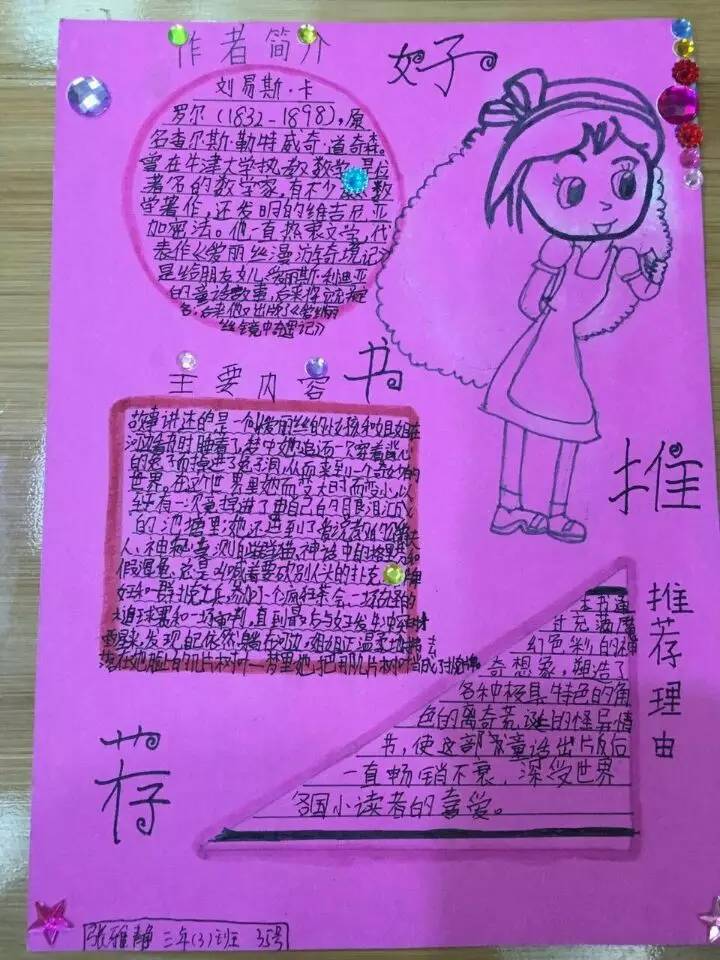 好
书
推
荐
作者简介
刘易斯·卡
罗尔(1832-1898),原
名查尔斯·勒特威奇·道奇森。
曾在牛津大学执教数学,是位
著名的数学家,有不少 数
学著作,还发明的维吉尼亚
加密法。他一直热衷文学,代
表作《爱丽丝漫游奇境记》
是给朋友女儿爱丽斯·利迪亚
的童话故事,后来
名,后来他又出版了《爱丽
丝镜中奇遇记》
主要内容
故事讲述的是一个叫爱丽丝的女孩和姐姐在
河边看书时睡着了,梦中她追逐一次穿着背心
的兔子而掉进了兔子洞,从而来到一个奇妙的
世界。在这个世界里她时而变大时而变小,以
至于有一次竟掉进了由自己的眼泪汇成
的池塘里;她还遇到了
人、神秘莫测的 猫、神话中的格里芬和
假海龟、总是叫喊着要砍别人头的扑克牌
好和一群扑克士兵,参加了一个疯狂茶会、一场荒谬的
球赛和一场审判,直到最后与女王发生冲突时
醒来,发现自己依然躺在河边,姐姐正温柔地拂去
落在她脸上的几片树叶——梦里她把那几片树叶当成了扑克牌。
推荐理由
本书通
过充满魔
幻色彩的神
奇想象,塑造了
各种极具特色的角
色的离奇荒诞的怪异情
书,使这部 童话出片反后
一直畅销不衰,深受世界
各国小读者的喜爱。
张雅静 三年(3)班 35号